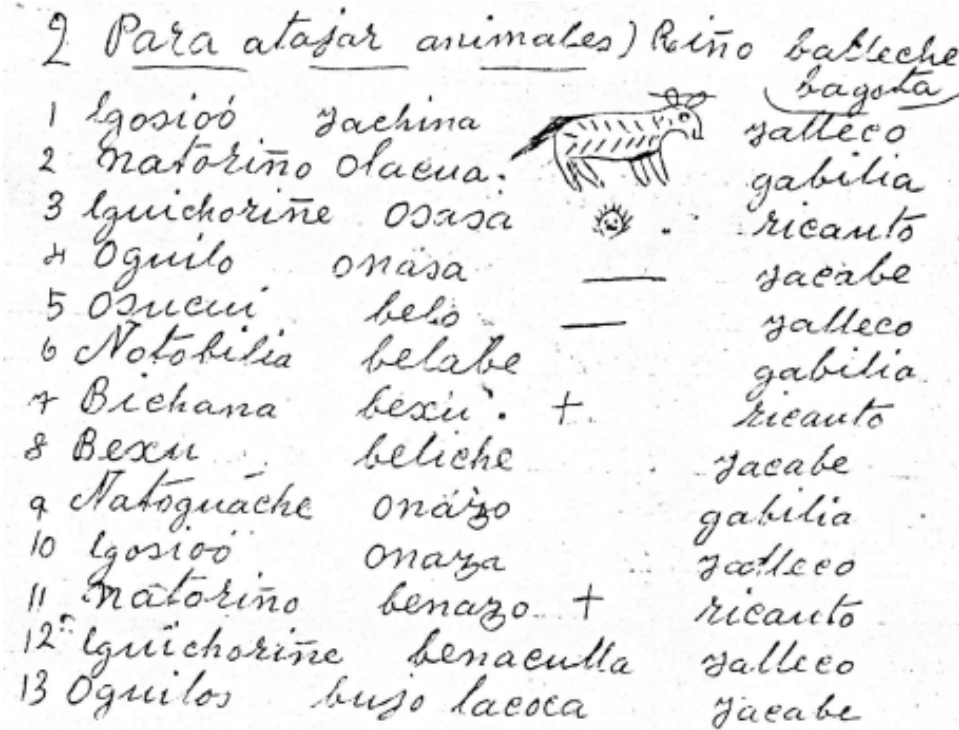 2 Para atajar animales) Riño balleche
bagota
1 Igosioó yachina yalleco
2 natoriño Olacua. gabilia
3 Iguichoriñe Osasa ricanto
4 Oguilo onasa yacabe
5 Osucui belo yalleco
6 Notobilia belabe gabilia
7 Bichana bexu. + ricanto
8 Bexu beliche yacabe
9 Natoguáche onázo gabilia
10 Igosioó onaza yalleco
11 natoriño benazo + ricanto
12 Iguichoriñe benaculla yalleco
13 Oguilos bujo lacoca yacabe